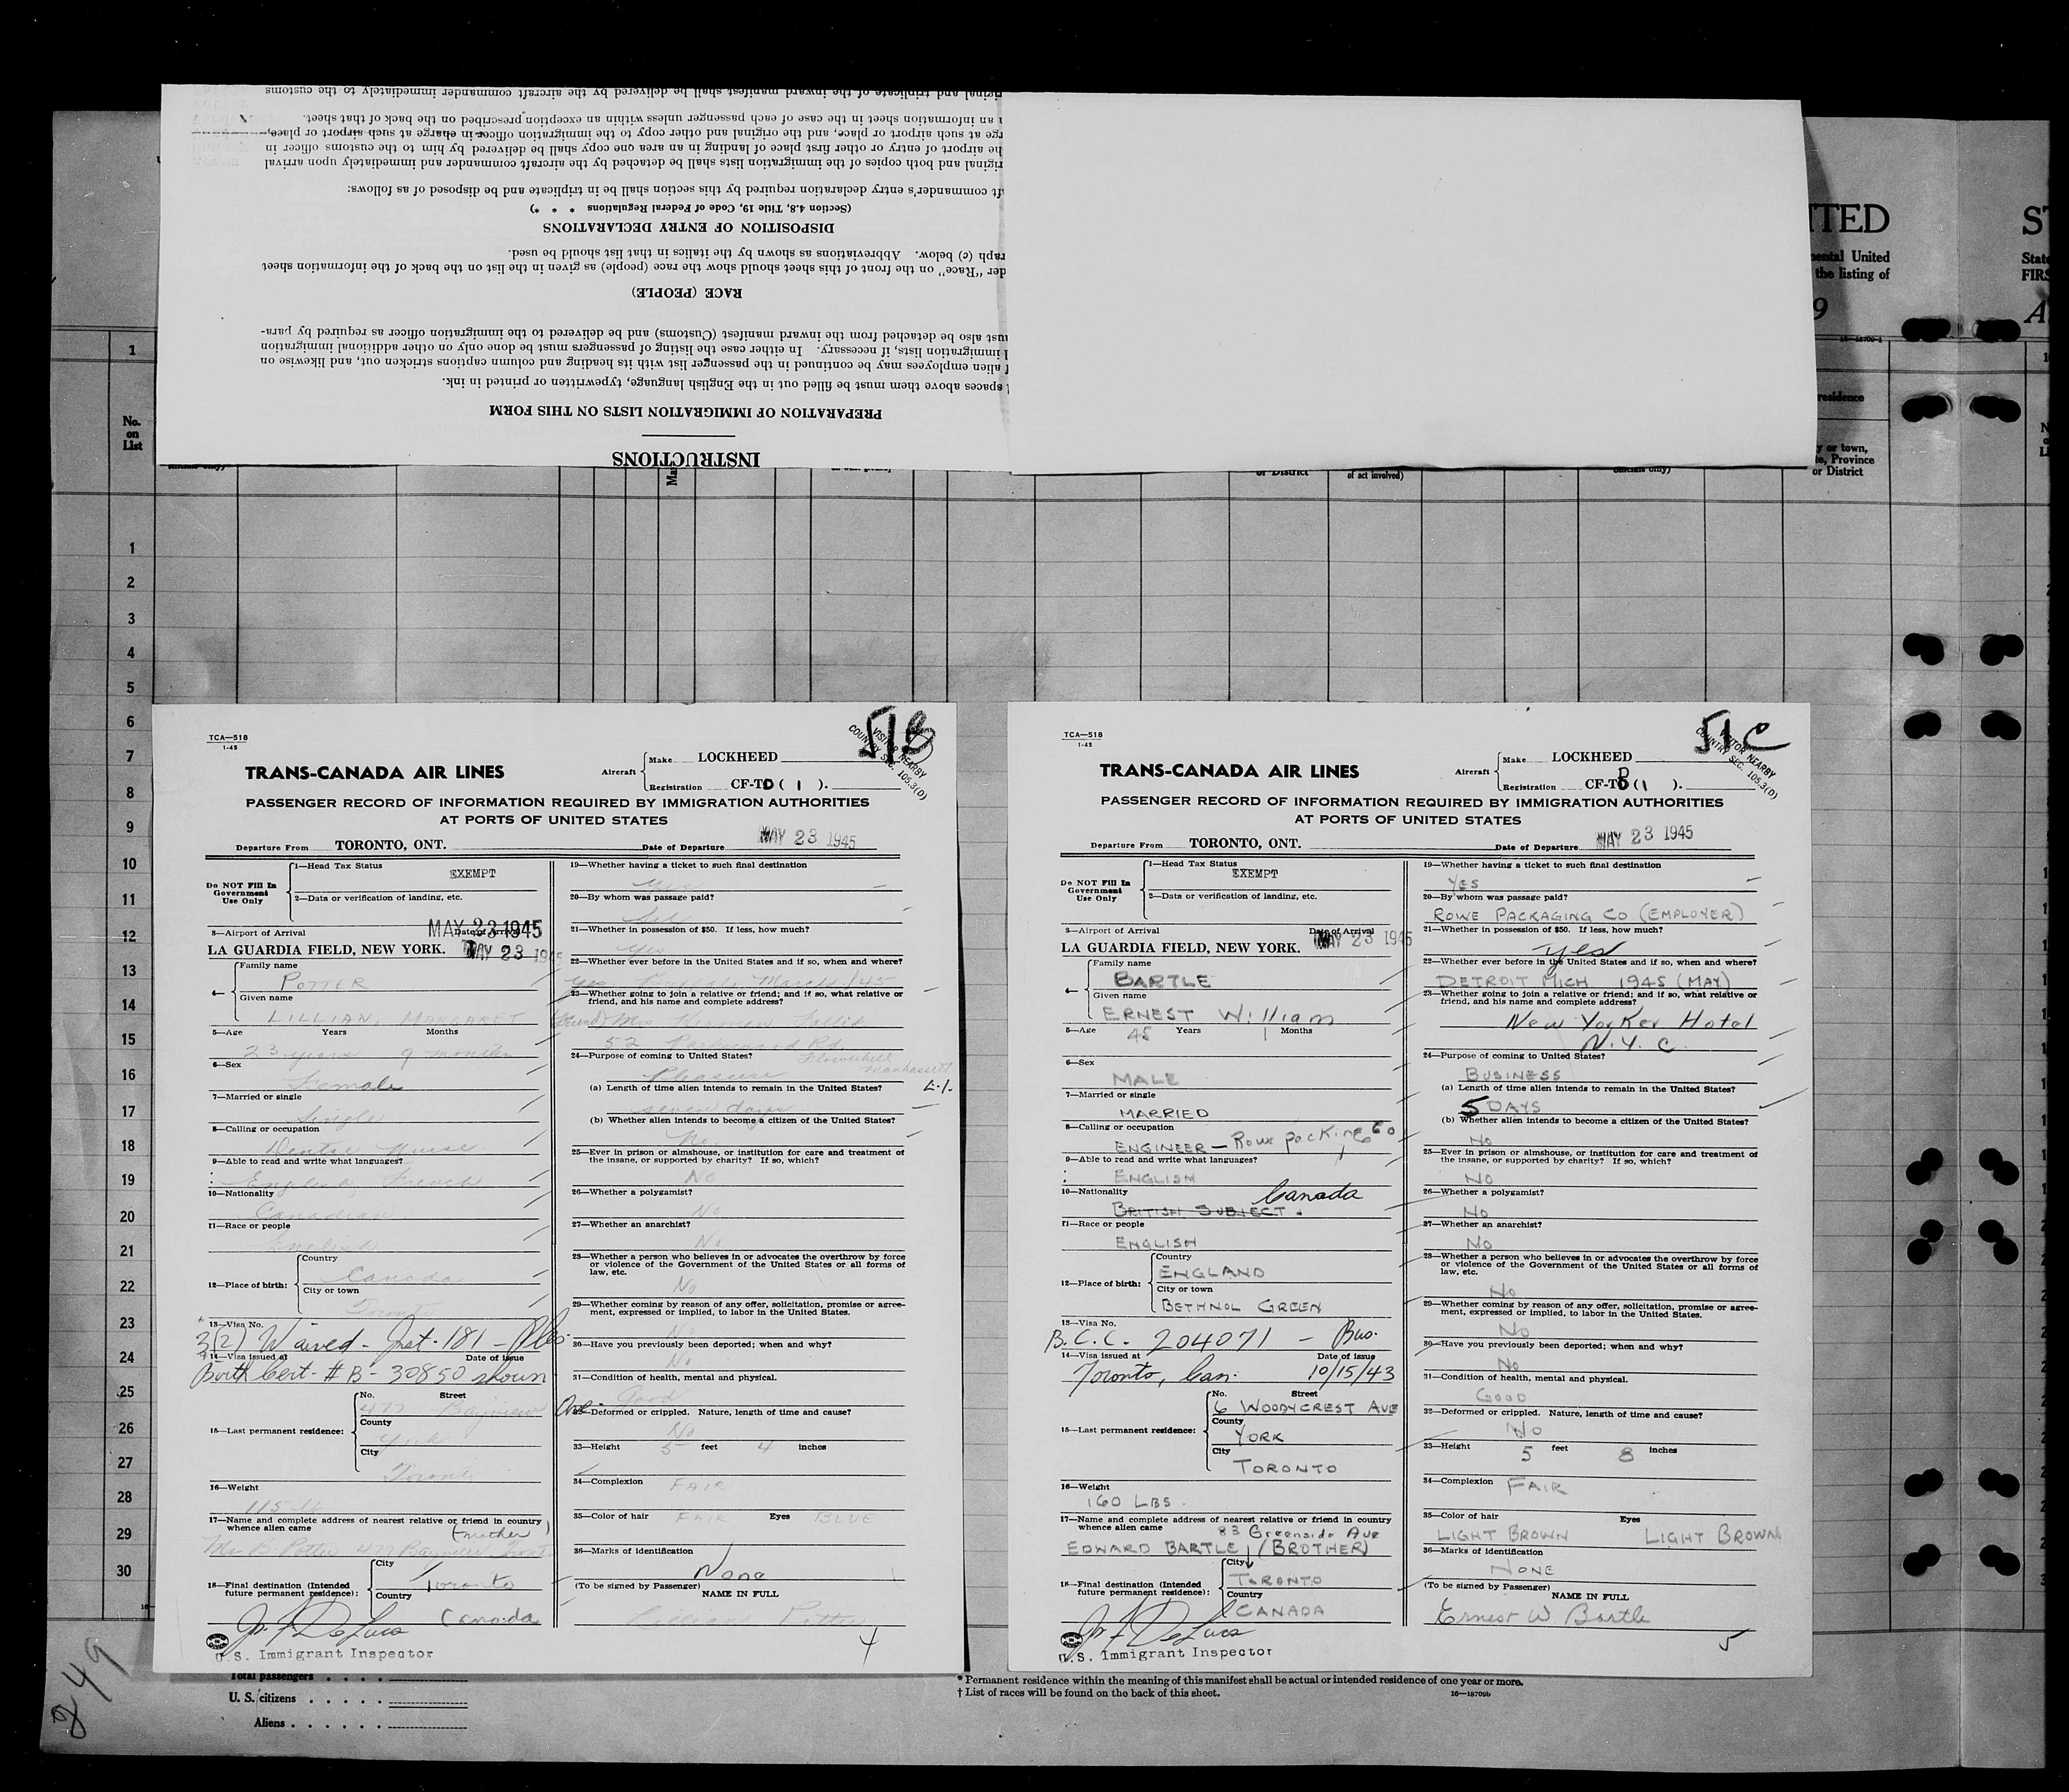 INSTRUCTIONS
PREPARATION OF IMMIGRATION LISTS ON THIS FORM
spaces above them must be filled out in the English language, typewritten or printed in ink.
alien employees may be continued in the passenger list with its heading and column captions stricken out, and likewise on
immigration lists, if necessary. In either case the listing of passengers must be done only on other additional immigration
ust also be detached from the inward manifest (Customs) and be delivered to the immigration officer as required by para-
RACE (PEOPLE)
der "Race" on the front of this sheet should show the race (people) as given in the list on the back of the information sheet
raph (c) below. Abbreviations as shown by the italics in that list should be used.
DISPOSITION OF ENTRY DECLARATIONS
(Section 4.8, Title 19, Code of Federal Regulations * * *)
ft commander's entry declaration required by this section shall be in triplicate and be disposed of as follows:
riginal and both copies of the immigration lists shall be detached by the aircraft commander and immediately upon arrival
he airport of entry or other first place of landing in an area one copy shall be delivered by him to the customs officer in
rge at such airport or place, and the original and other copy to the immigration officer in charge at such airport or place,
an information sheet in the case of each passenger unless within an exception prescribed on the back of that sheet.
riginal and triplicate of the inward manifest shall be delivered by the aircraft commander immediately to the customs
ITED
ental United
the listing of
9
16—18709-1
residence
y or town,
te, Province
or District
ST
State
FIRS
A
1
No.
on
List
Ma
or District
of act involved)
officials only)
1
2
3
4
5
6
7
8
9
10
11
12
13
14
15
16
17
18
19
20
21
22
23
24
25
26
27
28
29
30
249
TCA—518
1-45
51B
VISITOR NEARBY
COUNTRY SEC. 105.3(D)
TRANS-CANADA AIR LINES
Aircraft
Make LOCKHEED
Registration CF-TD ( 1 ).
PASSENGER RECORD OF INFORMATION REQUIRED BY IMMIGRATION AUTHORITIES
AT PORTS OF UNITED STATES
Departure From TORONTO, ONT. Date of Departure MAY 23 1945
Do NOT Fill In
Government
Use Only
1—Head Tax Status
EXEMPT
2—Data or verification of landing, etc.
3—Airport of Arrival Date of Arrival
MAY 23 1945
LA GUARDIA FIELD, NEW YORK. MAY 23 1945
4—
Family name
POTTER
Given name
LILLIAN MARGARET
5—Age Years Months
23 years 9 months
6—Sex
Female
7—Married or single
Single
8—Calling or occupation
Dental Nurse
9—Able to read and write what languages?
English, French
10—Nationality
Canadian
11—Race or people
English
12—Place of birth:
Country
Canada
City or town
Toronto
13—Visa No.
3(2) Waived - Inst. 181 - Ples.
14—Visa issued at Date of issue
Birth Cert - # B - 30850 shown
15—Last permanent residence:
No. Street
477 Bayview Ave.
County
York
City
Toronto
16—Weight
115 lb
17—Name and complete address of nearest relative or friend in country
whence alien came (mother)
Mrs B. Potter 477 Bayview Toront
18—Final destination (Intended
future permanent residence):
City
Toronto
Country
Canada
U.S. Immigrant Inspector
19—Whether having a ticket to such final destination
Yes
20—By whom was passage paid?
Self
21—Whether in possession of $50. If less, how much?
Yes
22—Whether ever before in the United States and if so, when and where?
Yes March /45
23—Whether going to join a relative or friend; and if so, what relative or
friend, and his name and complete address?
(friend) Mrs
52 Rd.
Flowerhill
Manhassett
L.I.
24—Purpose of coming to United States?
Pleasure
(a) Length of time alien intends to remain in the United States?
seven days
(b) Whether alien intends to become a citizen of the United States?
No.
25—Ever in prison or almshouse, or institution for care and treatment of
the insane, or supported by charity? If so, which?
No
26—Whether a polygamist?
No
27—Whether an anarchist?
No
28—Whether a person who believes in or advocates the overthrow by force
or violence of the Government of the United States or all forms of
law, etc.
No
29—Whether coming by reason of any offer, solicitation, promise or agree-
ment, expressed or implied, to labor in the United States.
No
30—Have you previously been deported; when and why?
No
31—Condition of health, mental and physical.
Good
32—Deformed or crippled. Nature, length of time and cause?
No
33—Height 5 feet 4 inches
34—Complexion FAIR
35—Color of hair FAIR Eyes BLUE
36—Marks of identification
None
(To be signed by Passenger) NAME IN FULL
Lillian Potter
4
TCA—518
1-45
51C
VISITOR NEARBY
COUNTRY SEC. 105.3(D)
TRANS-CANADA AIR LINES
Aircraft
Make LOCKHEED
Registration CF-TD (1 ).
PASSENGER RECORD OF INFORMATION REQUIRED BY IMMIGRATION AUTHORITIES
AT PORTS OF UNITED STATES
Departure From TORONTO, ONT. Date of Departure MAY 23 1945
Do NOT Fill In
Government
Use Only
1—Head Tax Status
EXEMPT
2—Data or verification of landing, etc.
3—Airport of Arrival Date of Arrival
LA GUARDIA FIELD, NEW YORK. MAY 23 1945
4—
Family name
BARTLE
Given name
ERNEST William
5—Age 45 Years 1 Months
6—Sex
MALE
7—Married or single
MARRIED
8—Calling or occupation
ENGINEER — Rowe Packing Co
9—Able to read and write what languages?
ENGLISH
10—Nationality Canada
BRITISH SUBJECT.
11—Race or people
ENGLISH
12—Place of birth:
Country
ENGLAND
City or town
BETHNOL GREEN
13—Visa No.
B.C.C. 204071 — Bus.
14—Visa issued at Date of issue
Toronto, Can. 10/15/43
15—Last permanent residence:
No. Street
6 WOODYCREST AVE
County
YORK
City
TORONTO
16—Weight
160 LBS.
17—Name and complete address of nearest relative or friend in country
whence alien came 83 Greenside Ave
EDWARD BARTLE (BROTHER)
18—Final destination (Intended
future permanent residence):
City
TORONTO
Country
CANADA
U.S. Immigrant Inspector
19—Whether having a ticket to such final destination
YES
20—By whom was passage paid?
ROWE PACKAGING CO (EMPLOYER)
21—Whether in possession of $50. If less, how much?
yes
22—Whether ever before in the United States and if so, when and where?
DETROIT MICH 1945 (MAY)
23—Whether going to join a relative or friend; and if so, what relative or
friend, and his name and complete address?
New Yorker Hotel
N.Y.C.
24—Purpose of coming to United States?
BUSINESS
(a) Length of time alien intends to remain in the United States?
5 DAYS
(b) Whether alien intends to become a citizen of the United States?
No
25—Ever in prison or almshouse, or institution for care and treatment of
the insane, or supported by charity? If so, which?
NO
26—Whether a polygamist?
No
27—Whether an anarchist?
No
28—Whether a person who believes in or advocates the overthrow by force
or violence of the Government of the United States or all forms of
law, etc.
No
29—Whether coming by reason of any offer, solicitation, promise or agree-
ment, expressed or implied, to labor in the United States.
No
30—Have you previously been deported; when and why?
No
31—Condition of health, mental and physical.
GOOD
32—Deformed or crippled. Nature, length of time and cause?
No
33—Height 5 feet 8 inches
34—Complexion FAIR
35—Color of hair Eyes
LIGHT BROWN LIGHT BROWN
36—Marks of identification
NONE
(To be signed by Passenger) NAME IN FULL
Ernest W Bartle
5
Total passengers . . . .
U. S. citizens . . . . .
Aliens . . . . . .
* Permanent residence within the meaning of this manifest shall be actual or intended residence of one year or more.
† List of races will be found on the back of this sheet.
16—18709b